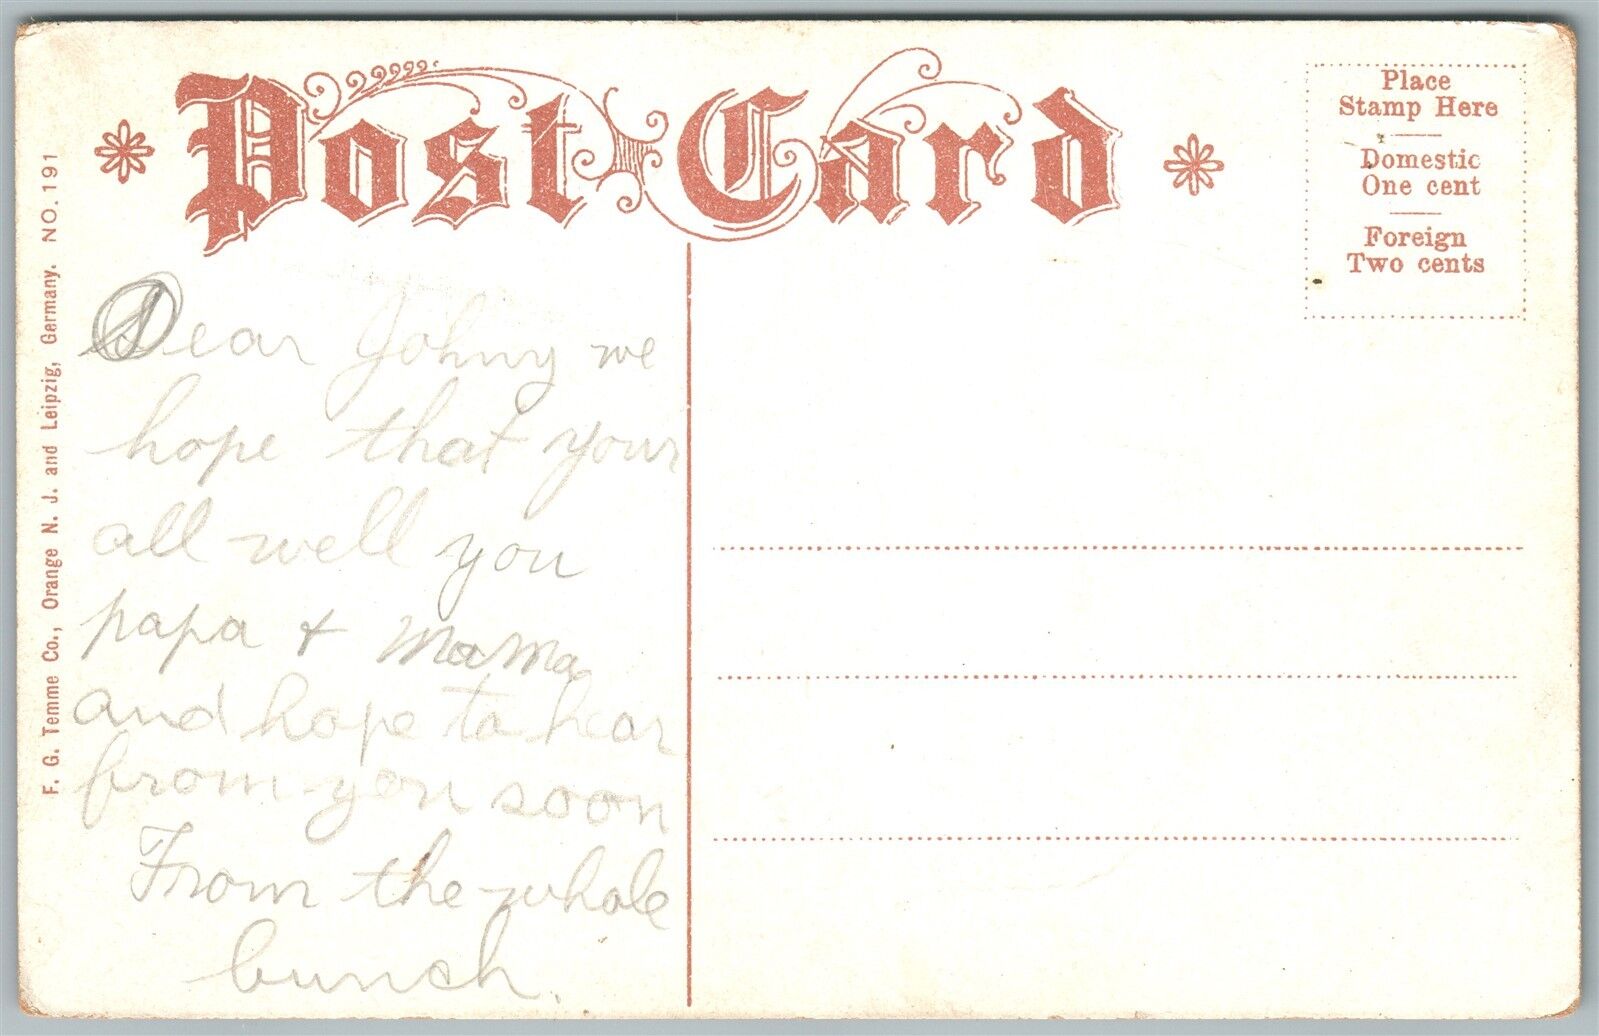 Post Card
Place
Stamp Here
Domestic
One cent
Foreign
Two cents
F. G. Temme Co., Orange N. J. and Leipzig, Germany. NO. 191
Dear Johny we
hope that your
all well you
papa + Mama
and hope to hear
from you soon
From the whole
bunch.